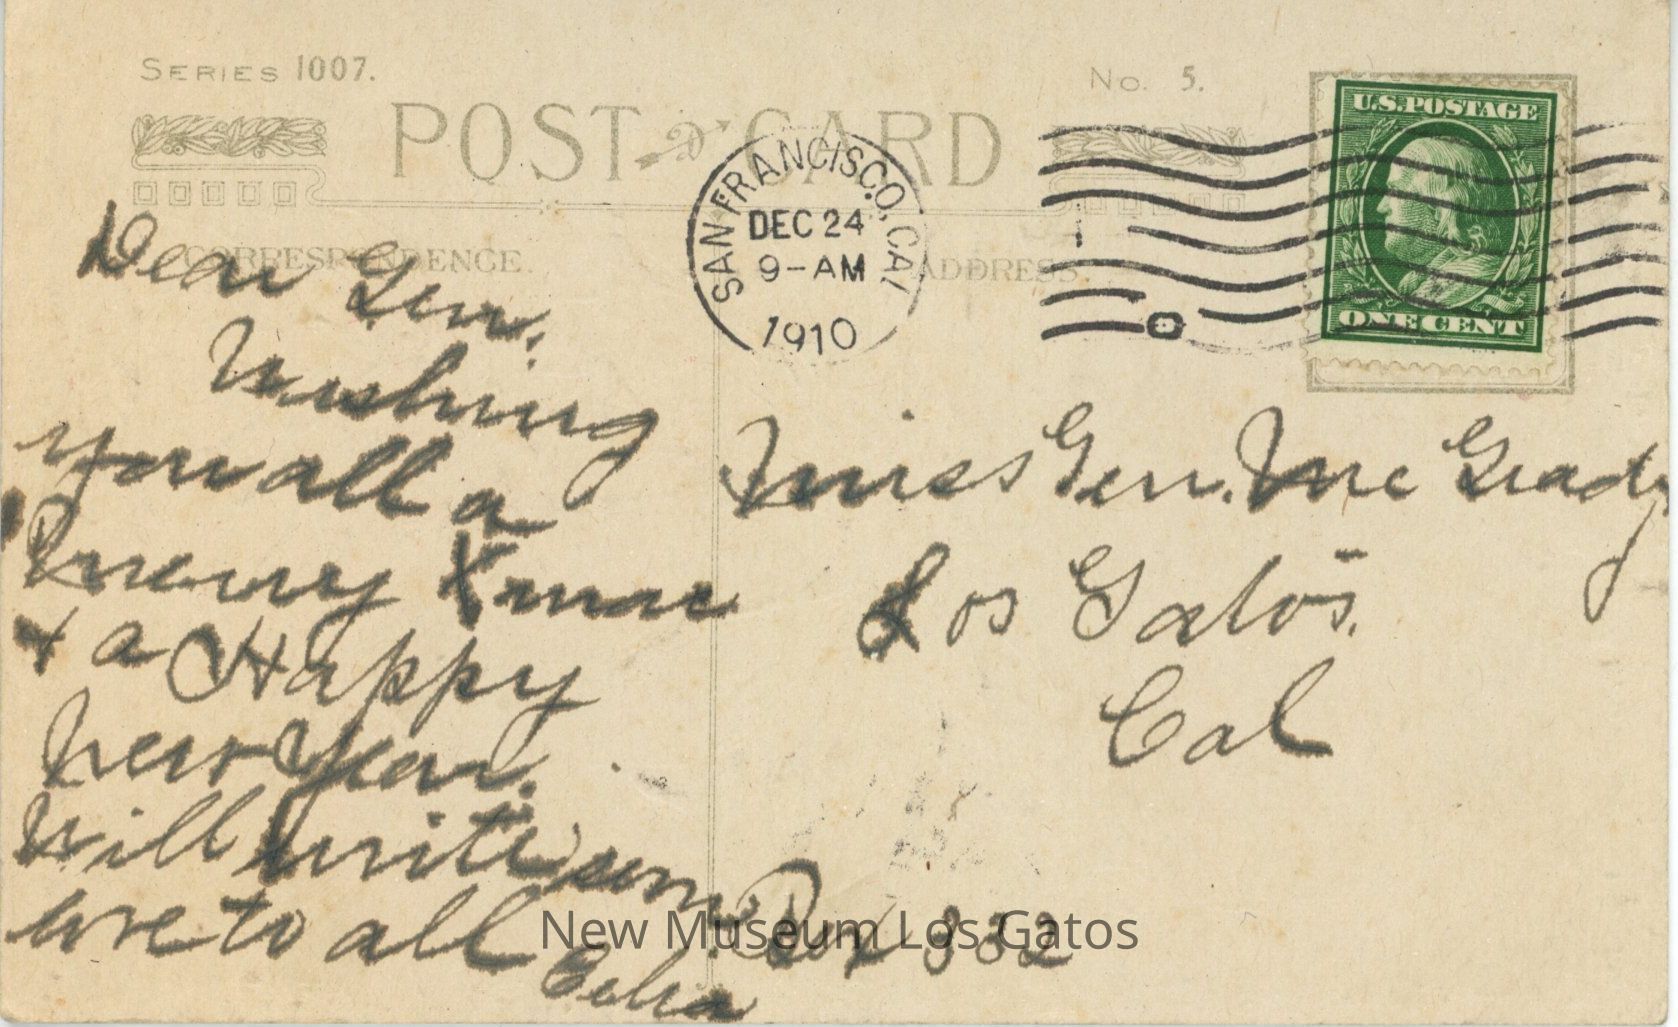 SERIES 1007.
No. 5.
POST CARD
CORRESPONDENCE.
ADDRESS.
SAN FRANCISCO, CAL
DEC 24
9-AM
1910
U.S. POSTAGE
ONE CENT
Dear Gen.
Wishing
you all a
Merry Xmas
+ a Happy
New Year.
Will write soon
love to all
Miss Gen. Mc Grady
Los Gatos.
Cal
Box 332
New Museum Los Gatos